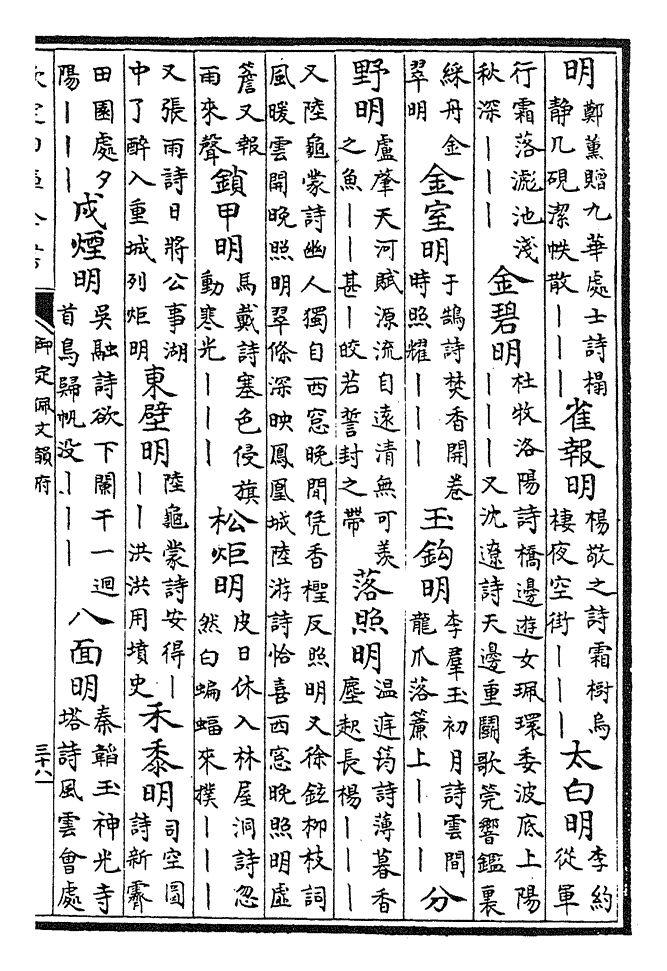 明鄭薰贈九華處士詩榻静几硯潔帙散｜｜｜雀報明楊敬之詩霜樹烏棲夜空街｜｜｜太白明李約從軍
行霜落滮池淺秋深｜｜｜金碧明杜牧洛陽詩橋邊遊女珮環委波底上陽｜｜｜又沈遼詩天邊重闗歌莞響鑑裏
綵丹金翠明金室明于鵠詩焚香開卷時照耀｜｜｜玉鈎明李羣玉初月詩雲間龍爪落簾上｜｜｜分
野明盧肇天河賦源流自遠清無可羡之魚｜｜甚｜皎若誓封之帶落照明温庭筠詩薄暮香塵起長楊｜｜｜
又陸龜蒙詩幽人獨自西窓晚閒凭香檉反照明又徐鉉柳枝詞風暖雲開晚照明翠條深映鳳凰城陸游詩恰喜西窓晚照明虚
簷又報雨來聲鎖甲明馬戴詩塞色侵旗動寒光｜｜｜松炬明皮日休入林屋洞詩忽然白蝙蝠來撲｜｜｜
又張雨詩日將公事湖中了醉入重城列炬明東壁明陸龜蒙詩安得｜｜｜洪洪用墳史禾黍明司空圖詩新霽
田園處夕陽｜｜｜戍煙明吳融詩欲下闌干一迴首烏歸帆没｜｜｜八面明秦韜玉神光寺塔詩風雲會處
欽定四庫全書 御定佩文韻府 三十八